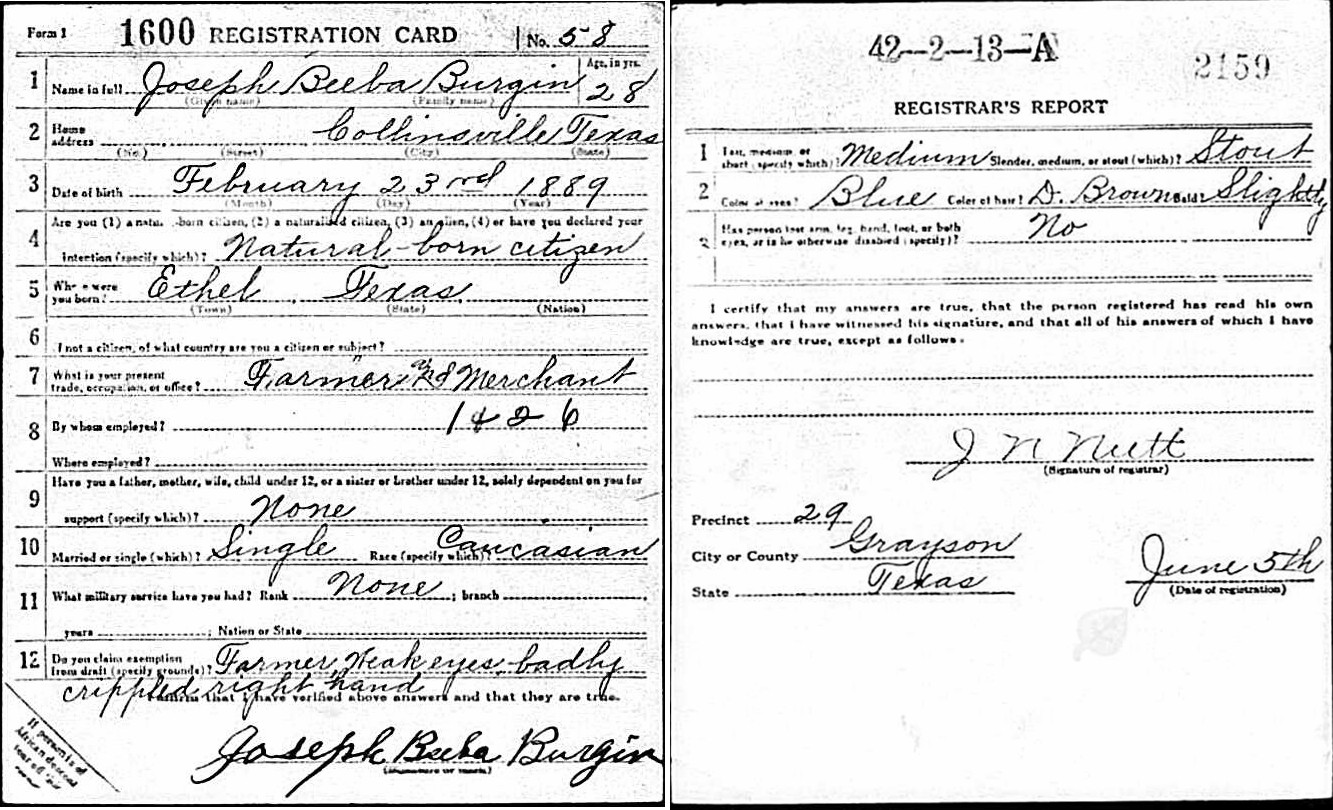 Form 1 1600 REGISTRATION CARD No. 58
1 Name in full Joseph Beeba Burgin Age, in yrs. 28
(Given name) (Family name)
2 Home address Collinsville Texas
(No.) (Street) (City) (State)
3 Date of birth February 23rd 1889
(Month) (Day) (Year)
Are you (1) a natural-born citizen, (2) a naturalized citizen, (3) an alien, (4) or have you declared your
4 intention (specify which)? Natural-born citizen
5 Where were you born? Ethel, Texas
(Town) (State) (Nation)
6 If not a citizen, of what country are you a citizen or subject?
7 What is your present trade, occupation, or office? Farmer & Merchant
8 By whom employed? 1426
Where employed?
Have you a father, mother, wife, child under 12, or a sister or brother under 12, solely dependent on you for
9 support (specify which)? None
10 Married or single (which)? Single Race (specify which)? Caucasian
11 What military service have you had? Rank None ; branch
years ; Nation or State
12 Do you claim exemption from draft (specify grounds)? Farmer, Weak eyes, badly
crippled right hand
I affirm that I have verified above answers and that they are true.
Joseph Beeba Burgin
(Signature or mark)
If person is of African descent
42-2-13-A
2159
REGISTRAR'S REPORT
1 Tall, medium, or short (specify which)? Medium Slender, medium, or stout (which)? Stout
2 Color of eyes? Blue Color of hair? D. Brown Bald? Slightly
3 Has person lost arm, leg, hand, foot, or both eyes, or is he otherwise disabled (specify)? No
I certify that my answers are true, that the person registered has read his own
answers, that I have witnessed his signature, and that all of his answers of which I have
knowledge are true, except as follows:
J N Nutt
(Signature of registrar)
Precinct 29
City or County Grayson
State Texas
June 5th
(Date of registration)